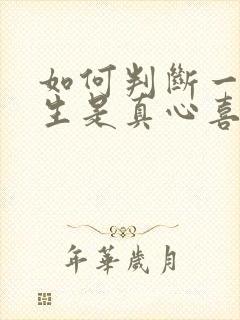 如何判斷一
生是真心喜
年華歲月